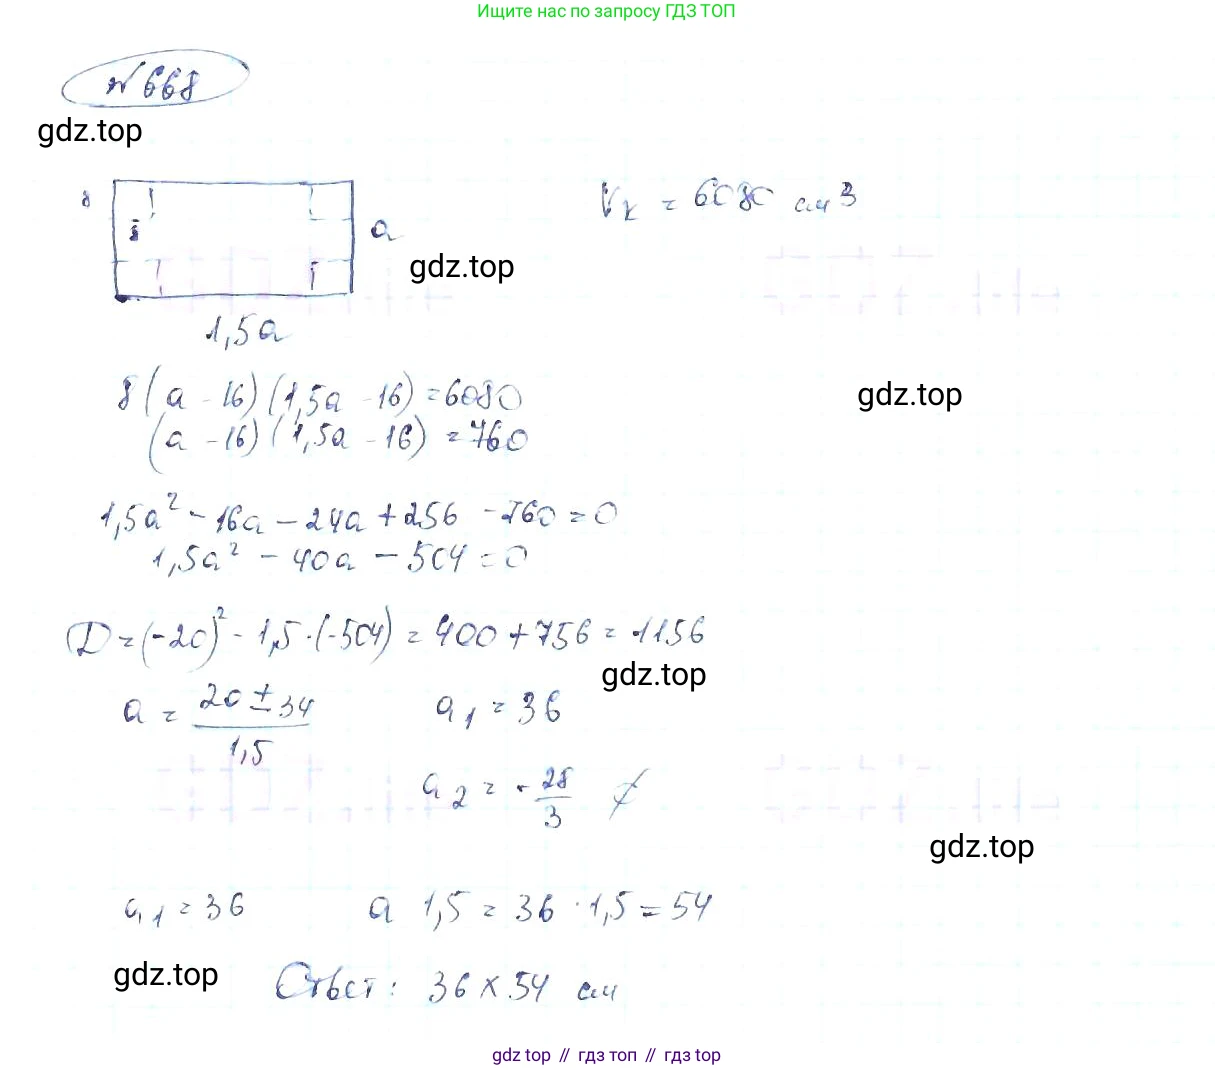 Ищите нас по запросу ГДЗ ТОП
№ 668
gdz.top
8
8
a
Vк = 6080 см3
gdz.top
1,5a
8(a - 16)(1,5a - 16) = 6080
gdz.top
(a - 16)(1,5a - 16) = 760
1,5a² - 16a - 24a + 256 - 760 = 0
1,5a² - 40a - 504 = 0
D = (-20)² - 1,5·(-504) = 400 + 756 = 1156
gdz.top
a = (20 ± 34)/1,5 a₁ = 36
a₂ = -28/3 ∉
gdz.top
a₁ = 36 a 1,5 = 36 · 1,5 = 54
gdz.top
Ответ: 36 × 54 см
gdz top // гдз топ // gdz top